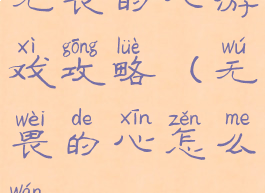 无畏的心游
xì gōng lüè wú
戏攻略（无
wèi de xīn zěn me
畏的心怎么
wán